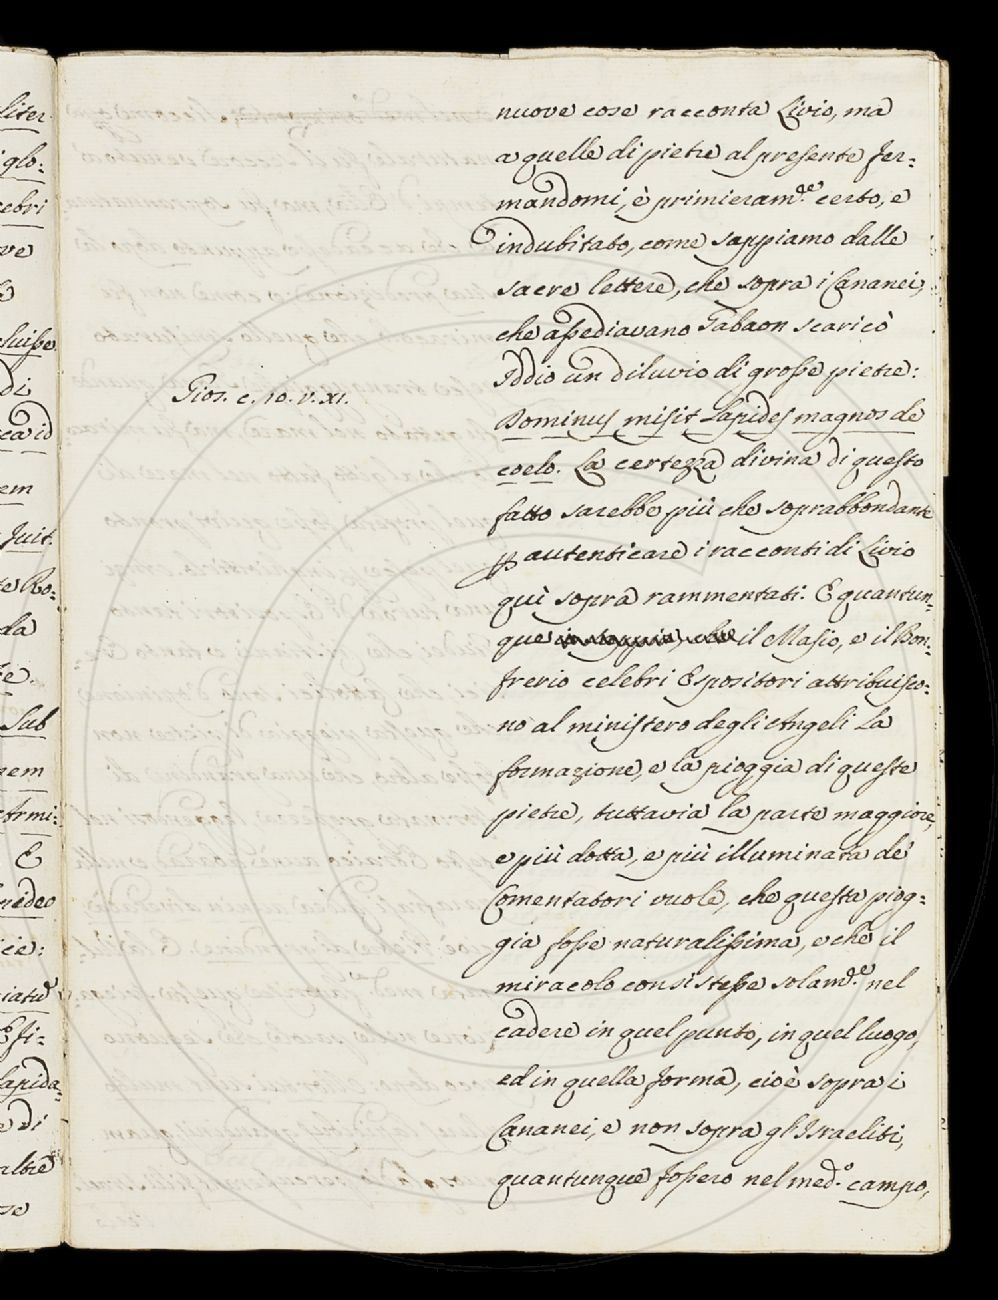 nuove cose racconta Livio, ma
a quelle di pietre al presente fer=
mandomi, è primieram.te certo, e
indubitato, come sappiamo dalle
sacre lettere, che sopra i Cananei,
che assediavano Gabaon scaricò
Iddio un diluvio di grosse pietre:
Gios. c. 10. v. XI.
Dominus misit Lapides magnos de
coelo. La certezza divina di questo
fatto sarebbe più che soprabbondante
p autenticare i racconti di Livio
quì sopra rammentati. E quantun=
que il Masio, e il Bon=
frerio celebri Espositori attribuisco=
no al ministero degli Angeli la
formazione, e la pioggia di queste
pietre, tuttavia la parte maggiore,
e più dotta, e più illuminata de'
Comentatori vuole, che questa piog=
gia fosse naturalissima, e che il
miracolo consistesse solam.te nel
cadere in quel punto, in quel luogo,
ed in quella forma, cioè sopra i
Cananei, e non sopra gl'Israeliti,
quantunque fossero nel med.o campo,
liter
glo:
ebri
ve
di
em
te Ro=
da
Sub
nem
Armi=
E
cie:
lapida=
e di
altre